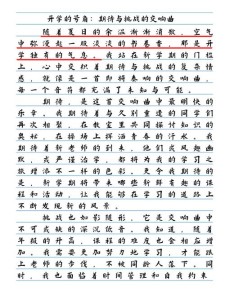 开学的号角：期待与挑战的交响曲
随着夏日的余温渐渐消散，空气
中弥漫起一股淡淡的书卷香，那是开
学独有的气息。我站在新学期的门槛
上，心中交织着期待与挑战的复杂情
感，就像是一首即将奏响的交响曲，
每个音符都充满了未知与可能。
期待，是这首交响曲中最明快的
乐章。我期待着与久别重逢的同学们
再次相聚，在教室里共同探讨知识的
奥秘，在操场上挥洒青春的汗水。我
期待着新老师的到来，他们或风趣幽
默，或严谨治学，都将为我的学习之
旅增添不一样的色彩。更期待的是，
新学期将带来哪些新鲜有趣的课
程和活动，让我能够在学习的道路上
不断发现新的风景。
挑战也如影随形，它是交响曲中
不可或缺的深沉低音。我知道，随着
年级的升高，课程的难度也会相应增
加，我需要更加努力地学习，才能跟
上老师的步伐，不被同龄人落下。同
时，我也面临着时间管理和自我约束